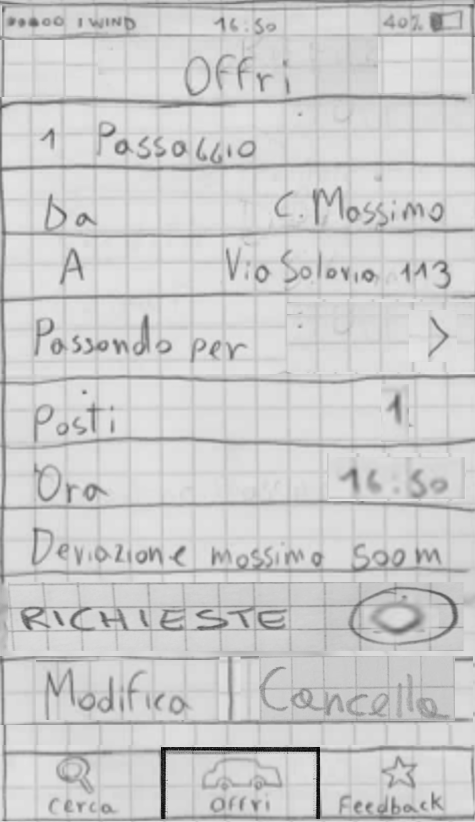 I WIND 16:50 40%
Offri
1 Passaggio
Da C. Massimo
A Via Salaria 113
Passando per >
Posti 1
Ora 16:50
Deviazione massima 500m
RICHIESTE 0
Modifica Cancella
Cerca Offri Feedback